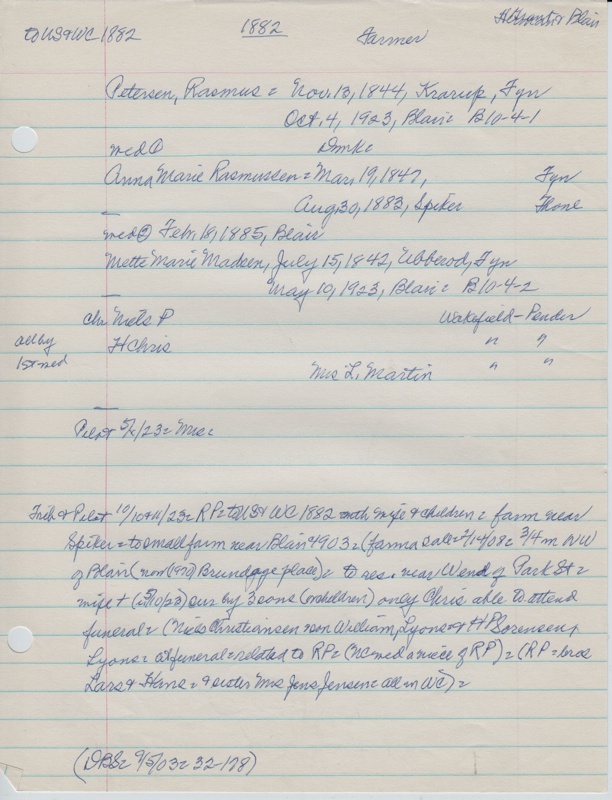 to US & WC 1882 1882 Farmer & Blair
Petersen, Rasmus = Nov. 13, 1844, Krarup, Fyn
Oct. 4, 1923, Blair = B10-4-1
med ① Dmk =
Anna Marie Rasmussen = Mar, 19, 1847, Fyn
Aug 30, 1883, Spiker Thone
med ② Feb. 18, 1885, Blair
Mette Marie Madsen, July 15, 1842, Ubberod, Fyn
May 10, 1923, Blair = B10-4-2
Ch: Niels P Wakefield - Pender
all by H Chris " "
1st med
Mrs L. Martin " "
Pilot 5/ /23 = Mrs =
Trib & Pilot 10/10&11/23 = RP = to US & WC 1882 with wife & children = farm near
Spiker = to small farm near Blair 1903 = (farm sale = 2/14/08 = 3/4 m NW
of Blair (now (1970) Brundage place) = to res. near W end of Park St =
wife + (5/10/23) sur by 3 sons (or children) only Chris able to attend
funeral = (Niels Christiansen son William, Lyons & H P Sorensen,
Lyons = at funeral = related to RP = (NC med a niece of RP) = (RP = bros
Lars & Hans = & sister Mrs Jens Jensen = all in WC) =
(DBS = 9/5/03 = 32-178)